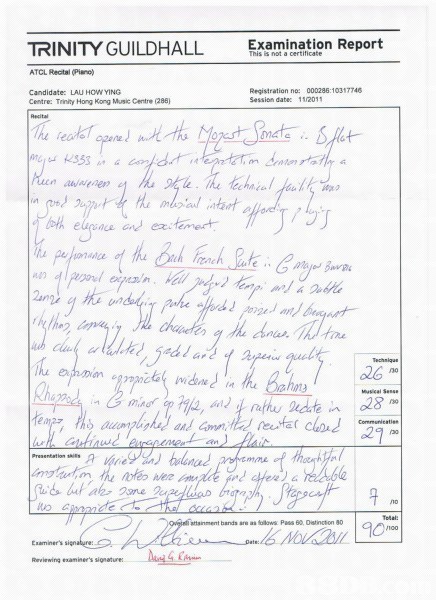 TRINITY GUILDHALL
Examination Report
This is not a certificate
ATCL Recital (Piano)
Candidate: LAU HOW YING
Centre: Trinity Hong Kong Music Centre (286)
Registration no: 000286:10317746
Session date: 11/2011
Recital
The recital opened with the Mozart Sonata in B flat
major K333 in a confident interpretation demonstrating a
keen awareness of the style. The technical facility was
in good support of the musical intent affording playing
of both elegance and excitement.
The performance of the Bach French Suite in G major
of personal expression. Well judged tempi and a subtle
sense of the underlying pulse afforded poised and buoyant
rhythms, conveying the character of the dances. The tone
was clearly articulated, graded and of superior quality.
The expression appropriately widened in the Brahms
Rhapsody in G minor op 79/2, and if rather sedate in
tempo, this accomplished and committed recital closed
with continued engagement and flair.
Technique
26 /30
Musical Sense
28 /30
Communication
29 /30
Presentation skills
A varied and balanced programme of thoughtful
construction, the notes were complete and offered a
but also some superfluous biography. Stagecraft
was appropriate to the occasion.
7 /10
Overall attainment bands are as follows: Pass 60, Distinction 80
Total:
90 /100
Examiner's signature:
Date: 16 NOV 2011
Reviewing examiner's signature: